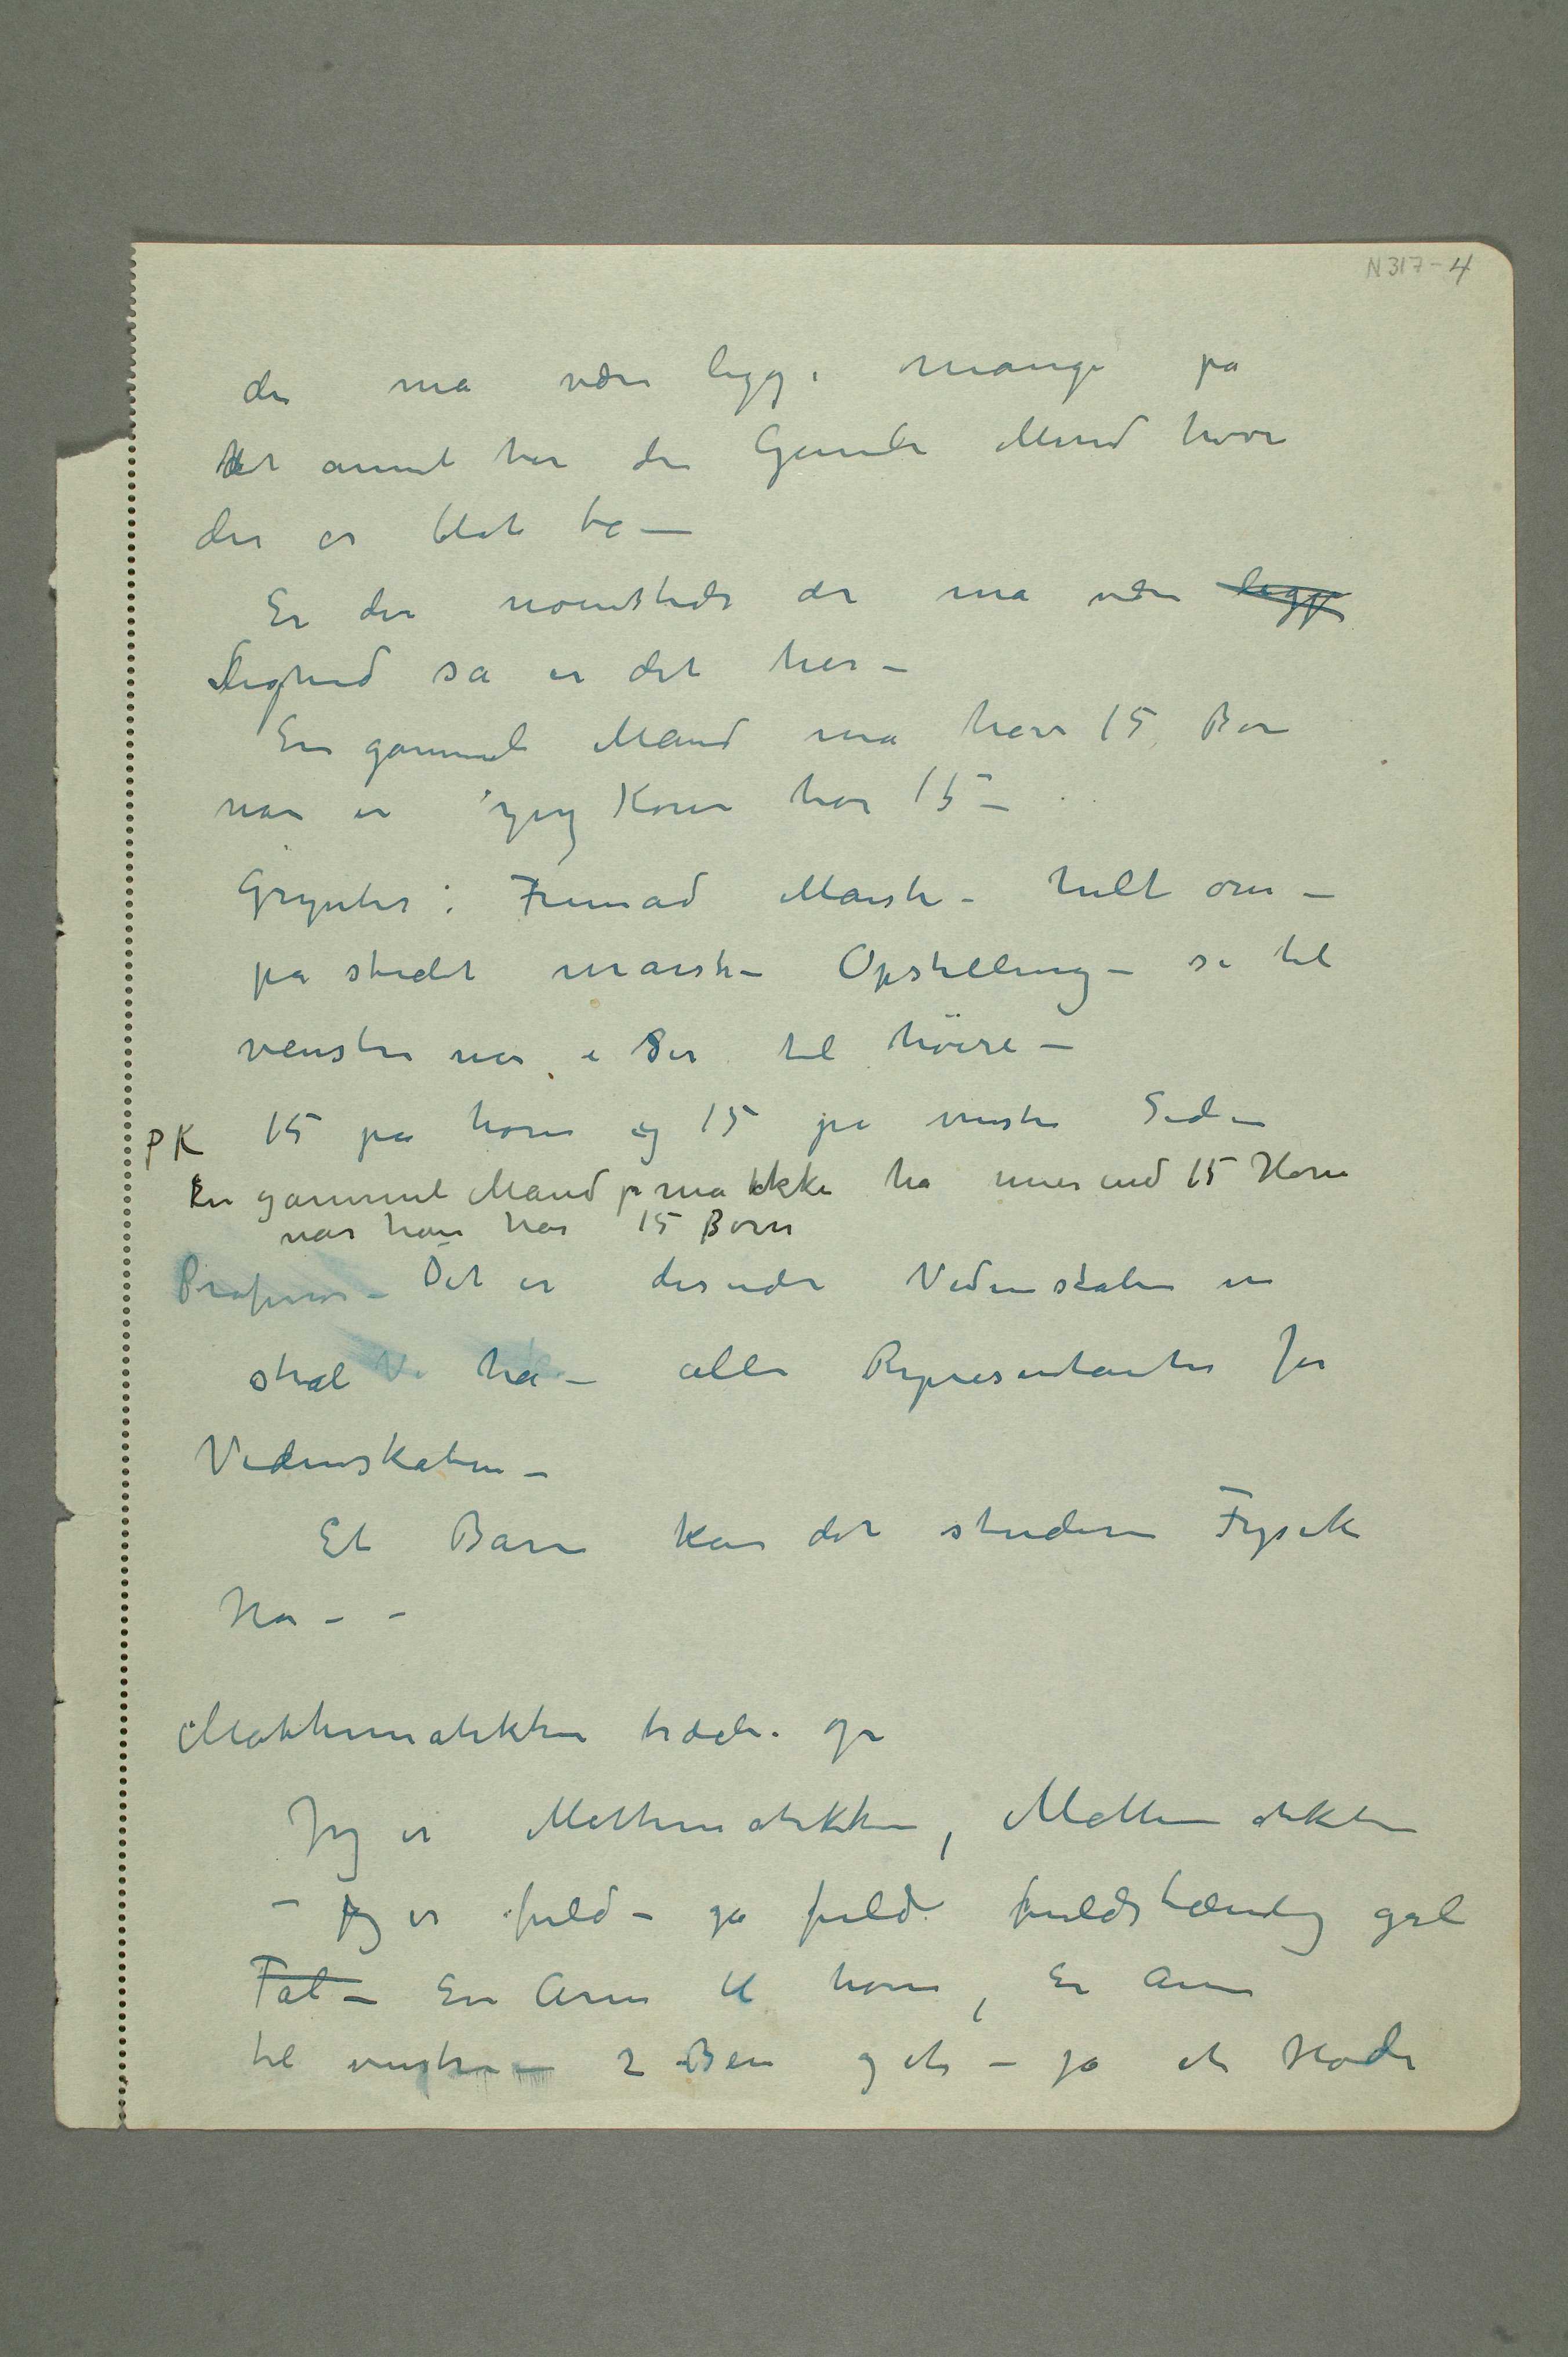 N 317-4
der må være ligge mange på
det annet har de Gamle Mænd hver
der er blot to —
Er der noensteds der må være ligge
Lighed så er det her —
En gammel Mand må have 15 Børn
når en yng Kone har 15 —
Grynter: Fremad Marsh - helt om —
på stedet marsh — Opstilling — se til
venstre når i Ser til höire —
15 på høire og 15 på venstre Side
PK
En gammel Mand må ikke ha mer end 15 Horn
når han har 15 Børn
Professor — Det er desuden Videnskaben en
skal Vi ha — alle Representanter for
Videnskaben —
Et Barn kan det studere Fysik
Ha - -
Matthematikken træder op
Jeg er Matthematikken, Matthematikken
— jeg er fuld — ja fuld fuldstændig gal
Tal — En Arm til høire, En Arm
til venstre — 2 Ben og et — ja et Hode